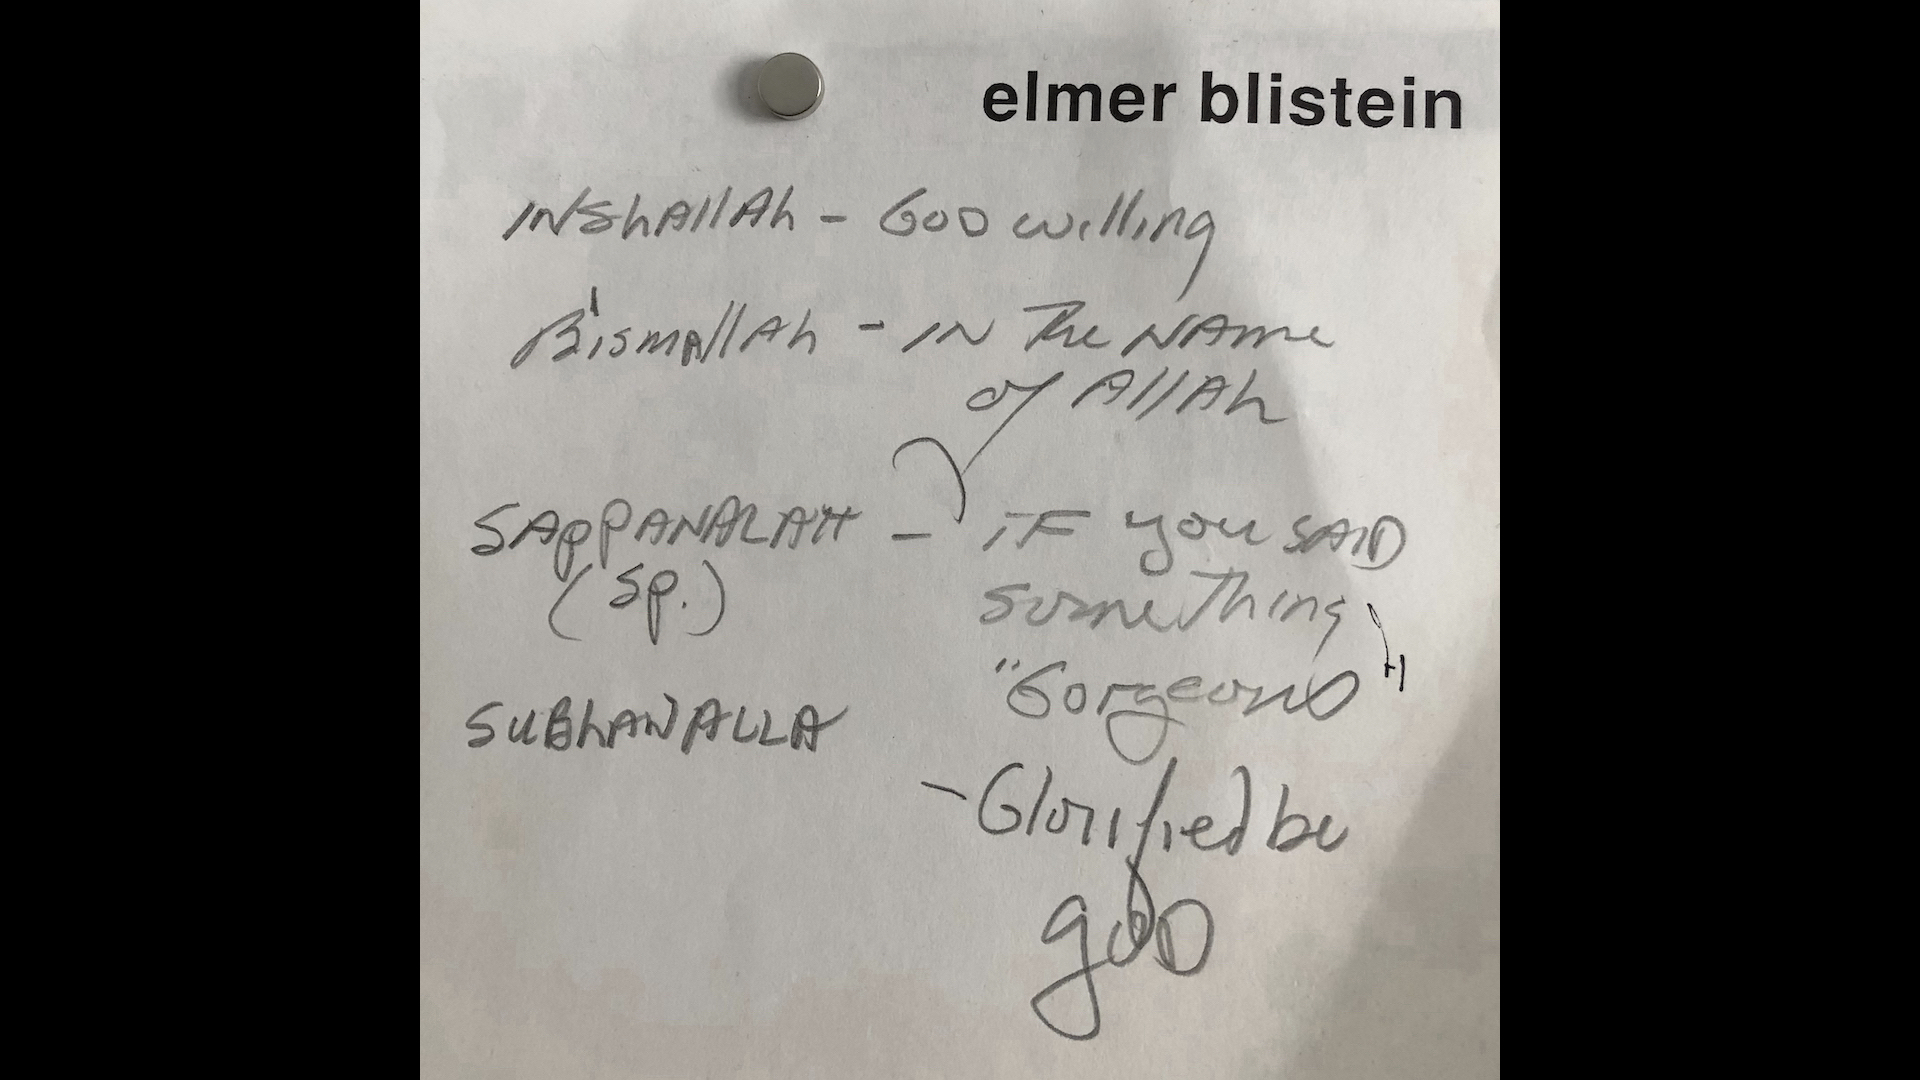 elmer blistein
INShAllAh - GOD willing
Bismallah - IN The NAme
of AllAh
SAPPANALAH - IF you SAID
(sp.) something
"Gorgeous"
SUBhANALLA
- Glorified be
goD